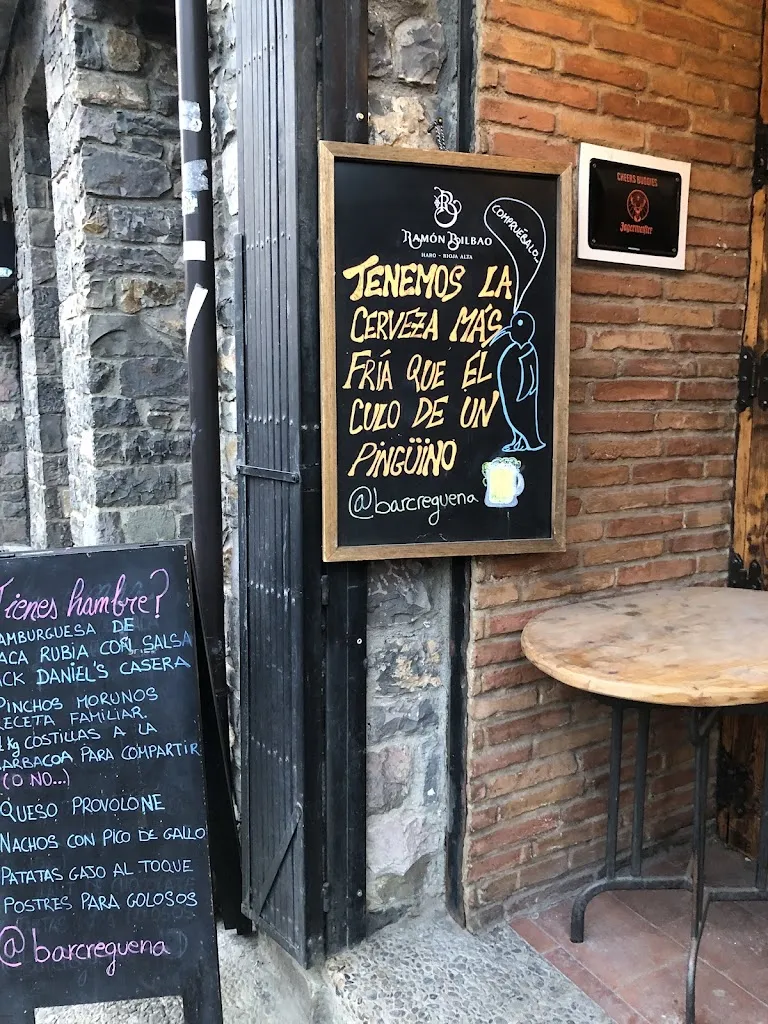 RAMÓN BILBAO
HARO - RIOJA ALTA
COMPRUÉBALO...
TENEMOS LA
CERVEZA MÁS
FRÍA QUE EL
CULO DE UN
PINGÜINO
@barcreguena
CHEERS BUDDIES
Jägermeister
Tienes hambre?
AMBURGUESA DE
ACA RUBIA CON SALSA
CK DANIEL'S CASERA
PINCHOS MORUNOS
RECETA FAMILIAR.
1kg COSTILLAS A LA
ARBACOA PARA COMPARTIR
(O NO...)
QUESO PROVOLONE
NACHOS CON PICO DE GALLO
PATATAS GAJO AL TOQUE
POSTRES PARA GOLOSOS
@barcreguena